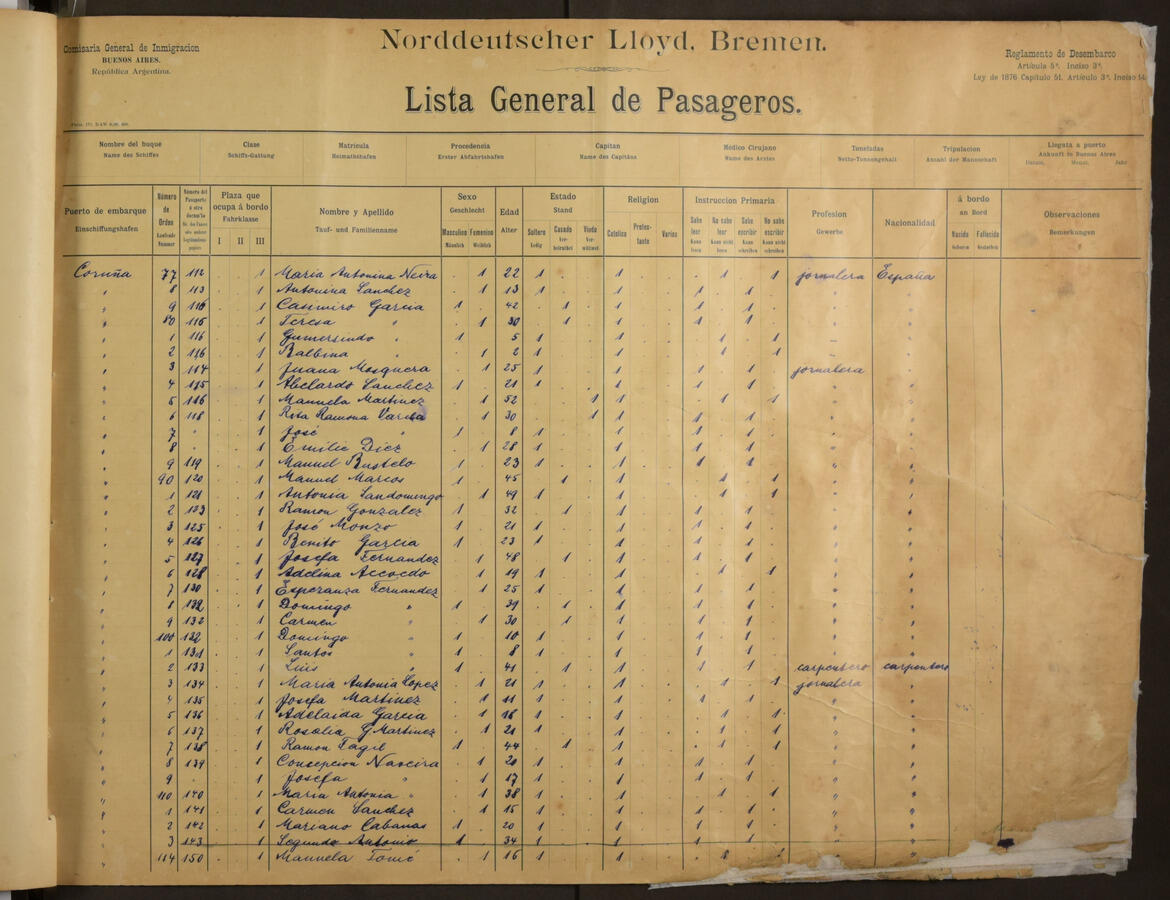 Comisaria General de Inmigracion
BUENOS AIRES.
República Argentina.
Norddeutscher Lloyd, Bremen.
Lista General de Pasageros.
Reglamento de Desembarco
Artículo 5º. Inciso 3º.
Ley de 1876 Capítulo 51. Artículo 3º. Inciso
Nombre del buque Clase Matricula Procedencia Capitan Médico Cirujano Toneladas Tripulacion Llegata a puerto
Name des Schiffes Schiffs-Gattung Heimathshafen Erster Abfahrtshafen Name des Capitäns Name des Arztes Netto-Tonnengehalt Anzahl der Mannschaft Ankunft in Buenos Aires
Datum, Monat, Jahr
Puerto de embarque Número de Orden Plaza que ocupa á bordo Nombre y Apellido Sexo Edad Estado Religion Instruccion Primaria Profesion Nacionalidad á bordo Observaciones
Einschiffungshafen Laufende Nummer Fahrklasse Tauf- und Familienname Geschlecht Alter Stand Gewerbe an Bord Bemerkungen
I II III Masculino Femenino Soltero Casado Viudo Catolica Protestante Varios Sabe leer No sabe leer Sabe escribir No sabe escribir Nacido Fallecido
Männlich Weiblich Ledig Verheirathet Verwittwet Kann lesen Kann nicht lesen Kann schreiben Kann nicht schreiben Geboren Gestorben
Coruña 77 112 1 Maria Antonina Neira 1 22 1 1 1 1 jornalera España
" 8 113 1 Antonina Sanchez 1 13 1 1 1 1
" 9 116 1 Casimiro Garcia 1 42 1 1 1 1 "
" 80 116 1 Teresa " 1 30 1 1 1 1
" 1 116 1 Gumersindo " 1 5 1 1 1 1
" 2 116 1 Balbina " 1 2 1 1 1 1
" 3 114 1 Juana Mosquera 1 25 1 1 1 1 jornalera
" 4 115 1 Abelardo Sanchez 1 21 1 1 1 1 "
" 5 116 1 Manuela Martinez 1 52 1 1 1 1 "
" 6 118 1 Rosa Ramona Varela 1 30 1 1 1 1 "
" 7 " 1 José " 1 8 1 1 1 1 "
" 8 " 1 Emilie Diez 1 28 1 1 1 1 "
" 9 119 1 Manuel Bustelo 1 23 1 1 1 1 "
" 90 120 1 Manuel Marcos 1 45 1 1 1 1 "
" 1 121 1 Antonia Sandomingo 1 49 1 1 1 1 "
" 2 123 1 Ramon Gonzalez 1 32 1 1 1 1 "
" 3 125 1 José Monzo 1 21 1 1 1 1 "
" 4 126 1 Benito Garcia 1 23 1 1 1 1 "
" 5 127 1 Josefa Fernandez 1 48 1 1 1 1 "
" 6 128 1 Adelina Accocdo 1 19 1 1 1 1 "
" 7 130 1 Esperanza Fernandez 1 25 1 1 1 1 "
" 1 132 1 Domingo " 1 31 1 1 1 1 "
" 9 132 1 Carmen " 1 30 1 1 1 1 "
" 100 132 1 Domingo " 1 10 1 1 1 1 "
" 1 131 1 Santos " 1 8 1 1 1 1 "
" 2 133 1 Luis " 1 41 1 1 1 1 carpentero carpentero
" 3 134 1 Maria Antonia Lopez 1 21 1 1 1 1 jornalera "
" 4 135 1 Josefa Martinez 1 11 1 1 1 1 " "
" 5 136 1 Adelaida Garcia 1 16 1 1 1 1 " "
" 6 137 1 Rosalia G Martinez 1 21 1 1 1 1 " "
" 7 138 1 Ramon Fagil 1 44 1 1 1 1 " "
" 8 139 1 Concepcion Naveira 1 20 1 1 1 1 " "
" 9 " 1 Josefa " 1 17 1 1 1 1 " "
" 110 140 1 Maria Antonia " 1 38 1 1 1 1 " "
" 1 141 1 Carmen Sanchez 1 15 1 1 1 1 " "
" 2 142 1 Mariano Cabanas 1 20 1 1 1 1 " "
" 3 143 1 Segundo Antonio 1 34 1 1 1 1 " "
" 114 150 1 Manuela Tomé 1 16 1 1 1 1 " "